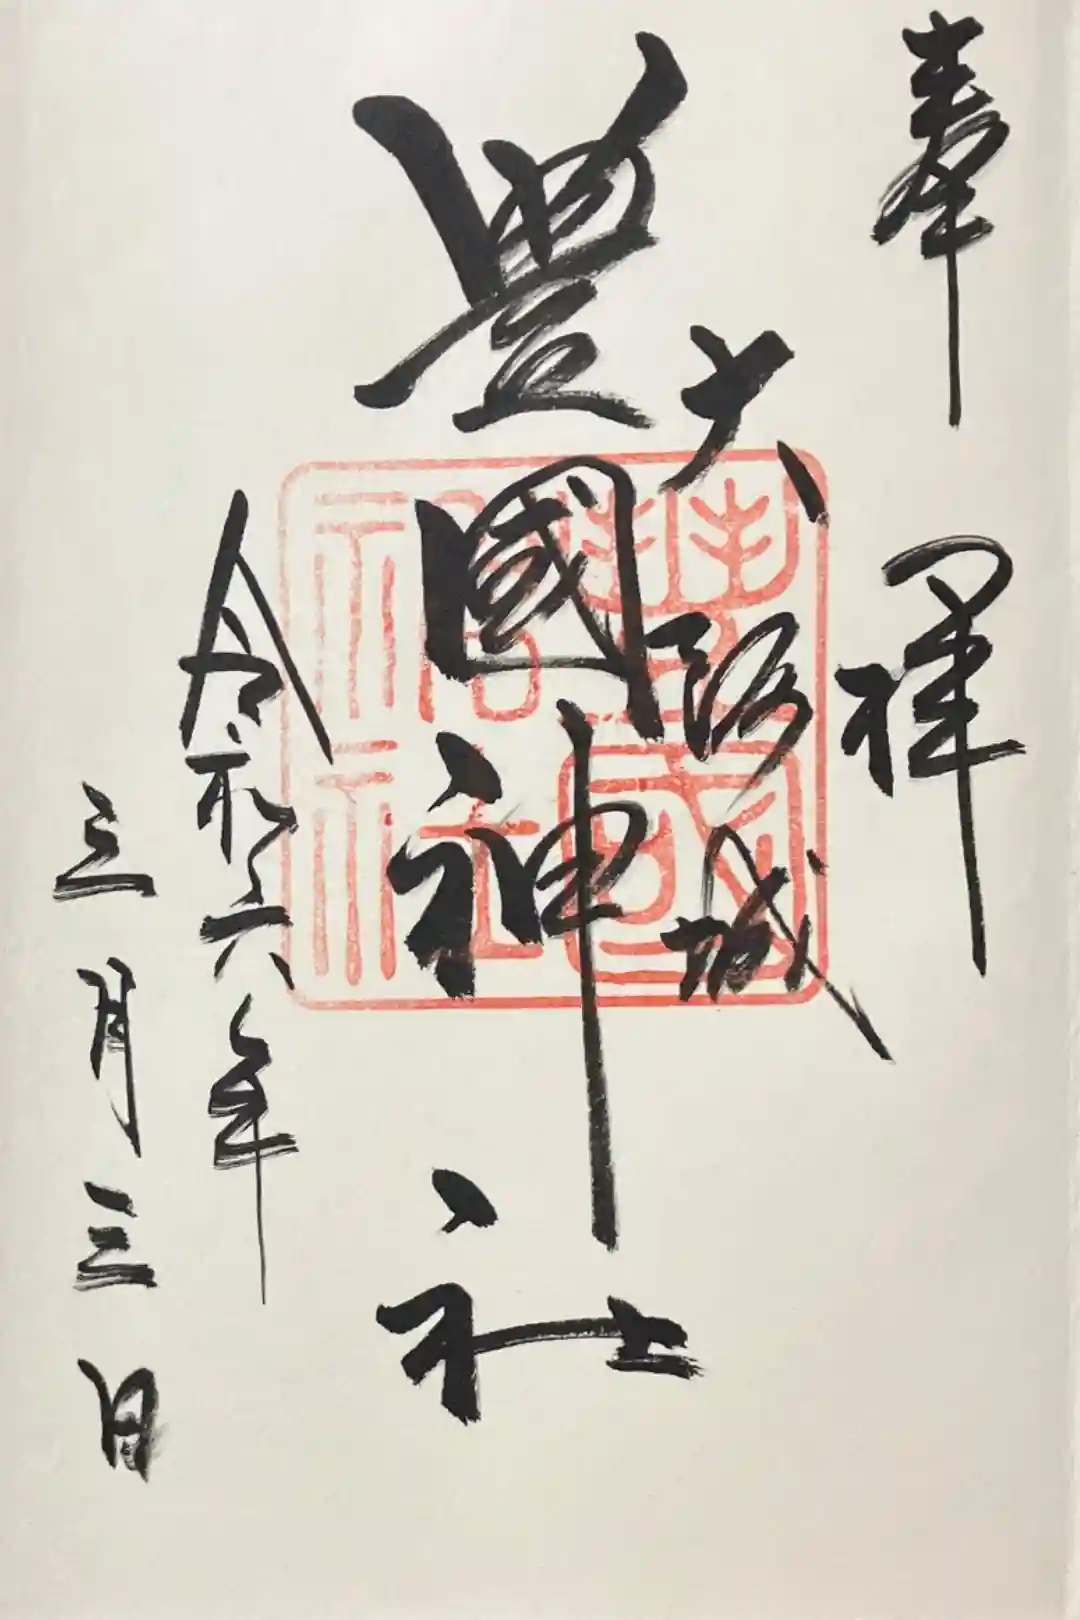 奉拝
大阪城
豊國神社
令和六年
三月三日
豐國神社